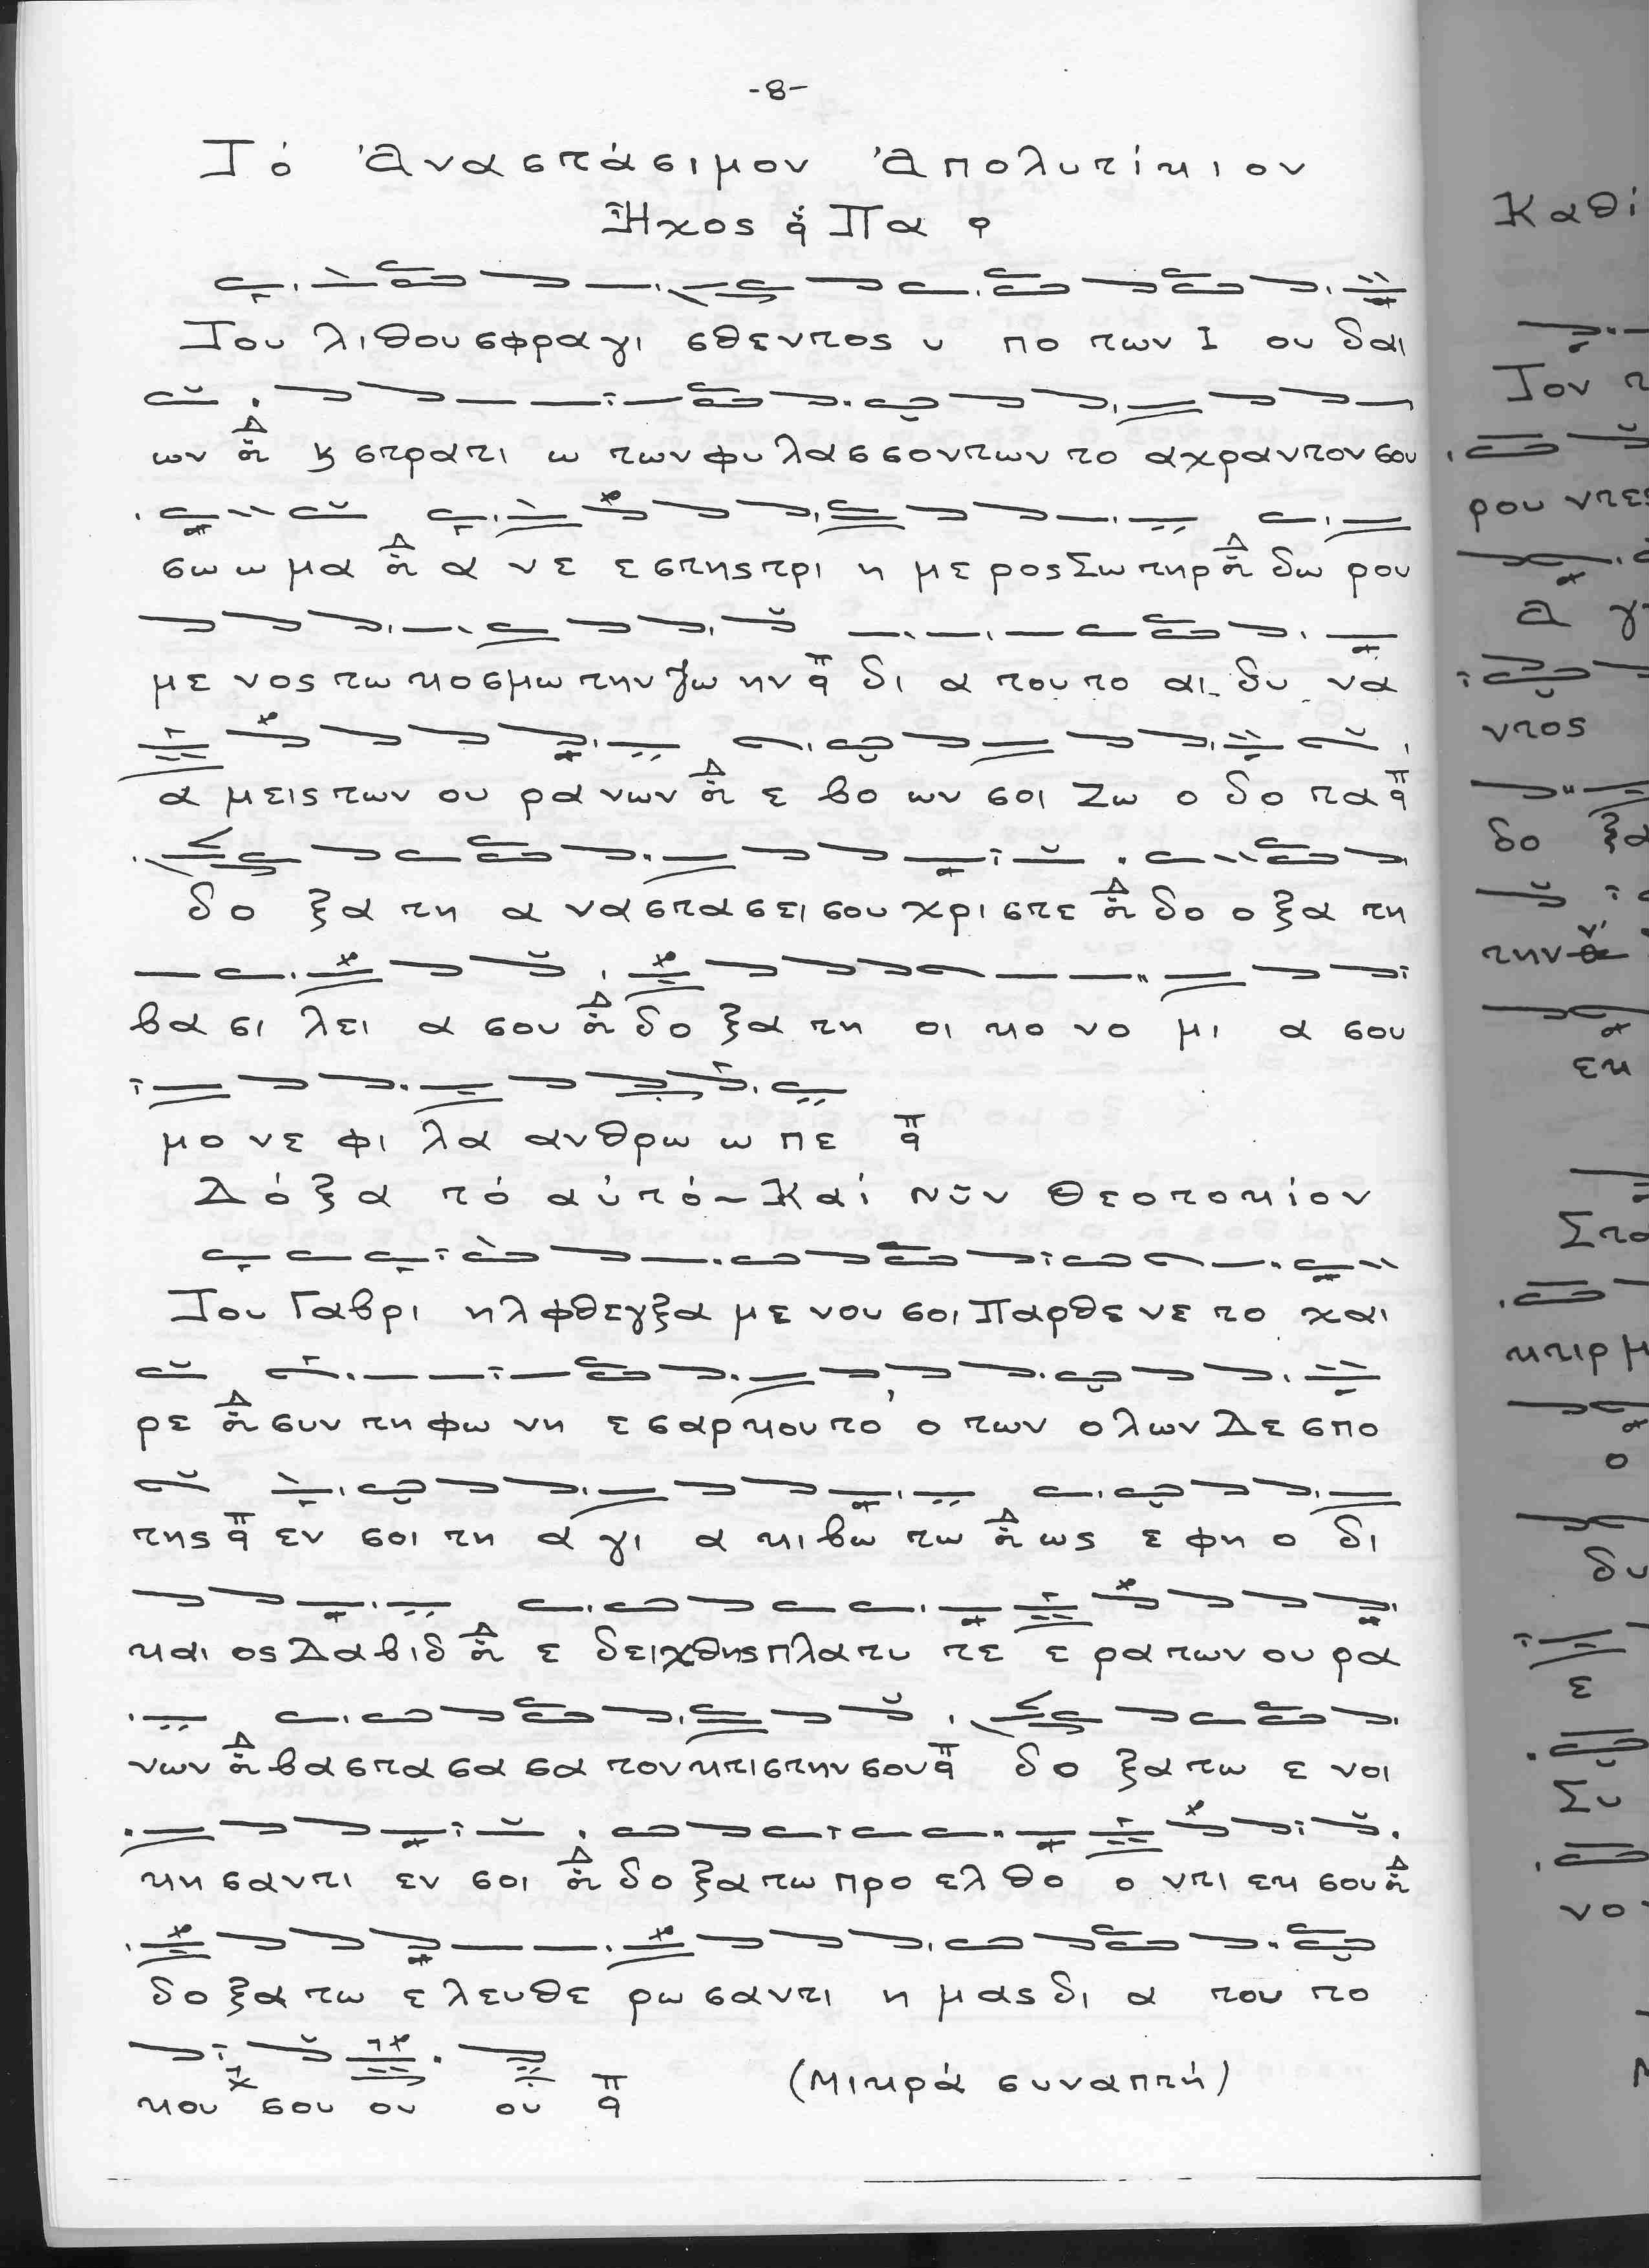 -8-
Τό Ἀναστάσιμον Ἀπολυτίκιον
Ἦχος Πα
Του λιθου σφραγι σθεντος υ πο των Ι ου δαι
ων ϗ στρατι ω των φυ λασσοντων το αχραντον σου
σω ω μα α νε ε στης τρι η με ρος Σω τηρ δω ρου
με νος τω κοσμω την ζω ην δι α του το αι δυ να
α μεις των ου ρα νων ε βο ων σοι Ζω ο δο τα
δο ξα τη α να στα σει σου χρι στε δο ο ξα τη
βα σι λει α σου δο ξα τη οι κο νο μι α σου
μο νε φι λα ανθρω ω πε
Δόξα τό αὐτό-Καί νῦν Θεοτοκίον
Του Γαβρι ηλ φθεγξα με νου σοι Παρθε νε το χαι
ρε συν τη φω νη ε σαρκου το ο των ολων Δε σπο
της εν σοι τη α γι α κι βω τω ως ε φη ο δι
και ος Δαβιδ ε δειχθης πλατυ τε ε ρα των ου ρα
νων βα στα σα σα τον κτιστην σου δο ξα τω ε νοι
κη σαντι εν σοι δο ξα τω προ ελ θο ο ντι εκ σου
δο ξα τω ε λευθε ρω σαντι η μας δι α του το
κου σου ου ου (Μικρά συναπτή)
Καθί
Τον τ
ρου ντες
α γ
ντος
δο ξα
την
εκ
Στα
κτιρ μ
ο
δυ
ε
Συ
νο